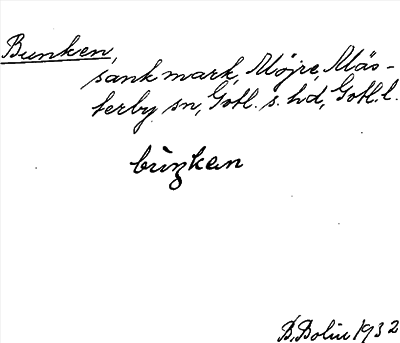 Bunken,
sank mark, Møjre, Mäs-
terby sn, Gotl. s. hd, Gotl. l.
bùŋken
B. Bolin 1932